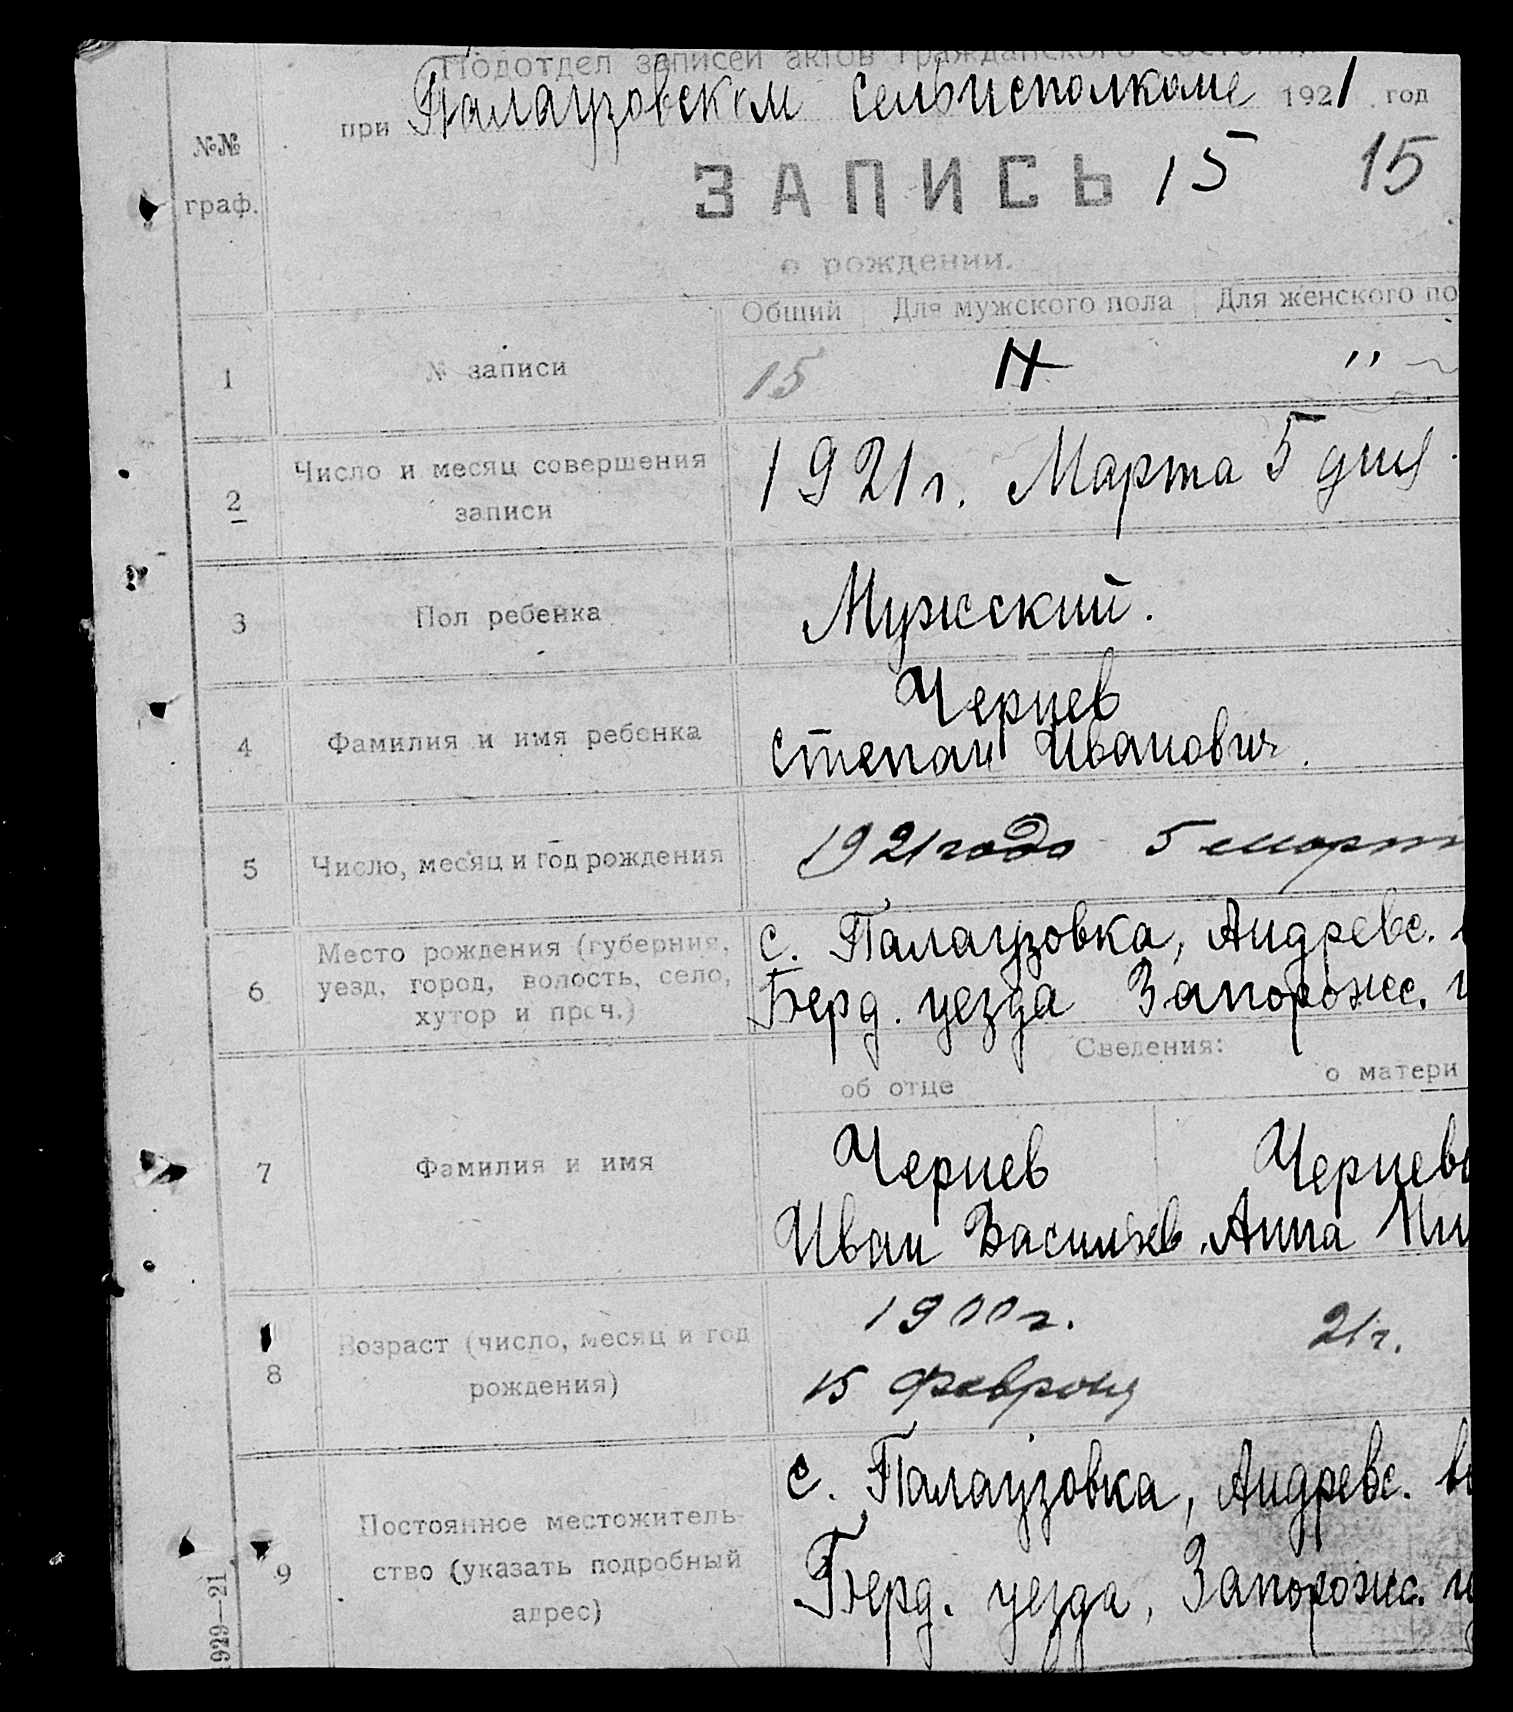 Подотдел записей актов гражданского состоян
при Палаузовском сельисполкоме 1921 год
№№ граф.
ЗАПИСЬ 15 15
о рождении.
Общий Для мужского пола Для женского по
1 № записи 15 "
2 Число и месяц совершения
записи
1921 г. Марта 5 дня
3 Пол ребенка Мужский.
4 Фамилия и имя ребенка Чернев
Степан Иванович.
5 Число, месяц и год рождения 1921 года 5 март
6 Место рождения (губерния,
уезд, город, волость, село,
хутор и проч.)
с. Палаузовка, Андревс.
Берд. уезда Запорожс.
Сведения:
об отце о матери
7 Фамилия и имя
Чернев Чернева
Иван Васильев. Анна
8 Возраст (число, месяц и год
рождения)
1900 г. 21 г.
15 февраля
9 Постоянное местожитель-
ство (указать подробный
адрес)
с. Палаузовка, Андревс. в
Берд. уезда, Запорожс.
1929—21